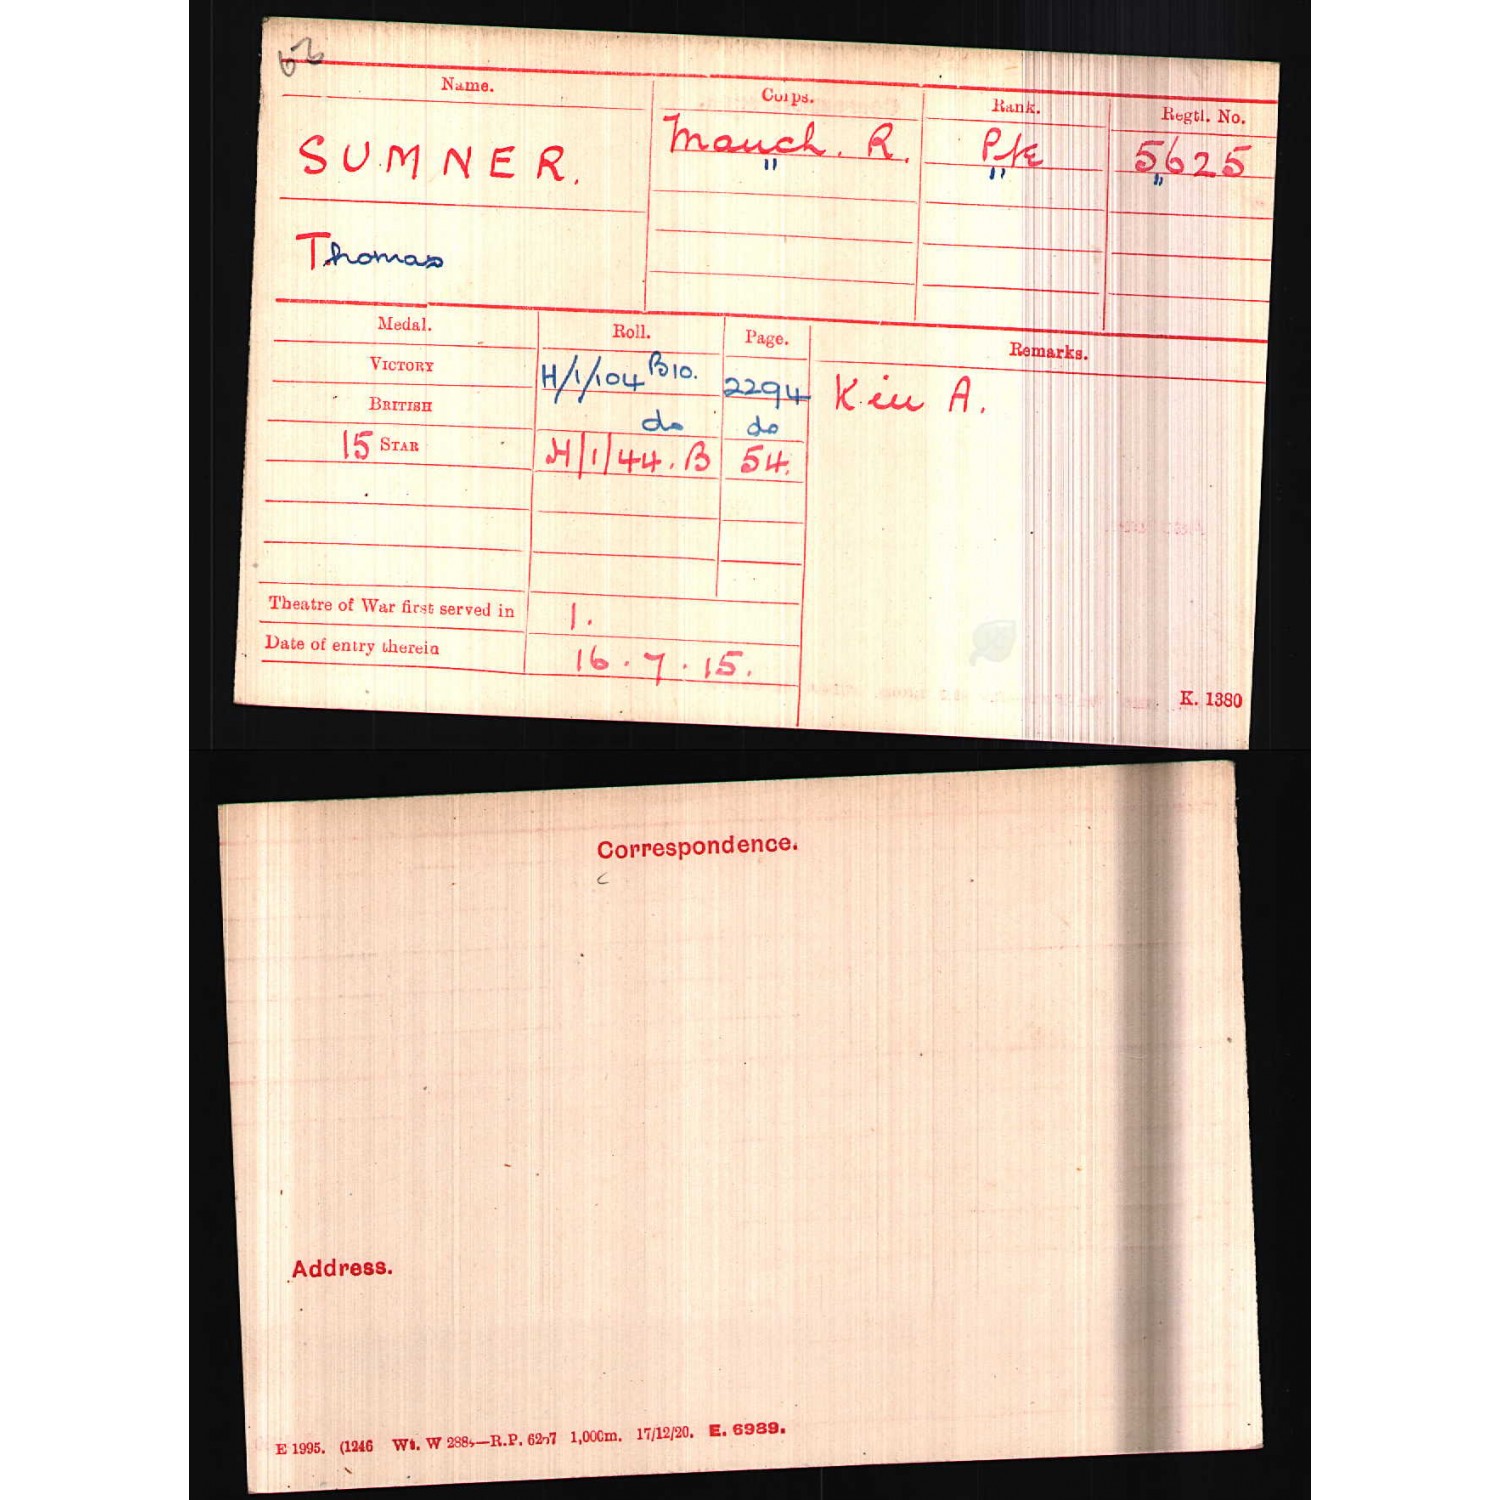 Name. Corps. Rank. Regtl. No.
SUMNER. Manch. R. Pte 5625
" " "
Thomas
Medal. Roll. Page. Remarks.
VICTORY H/1/104 B10. 2294 Kin A.
BRITISH do do
15 STAR H/1/44.B 54.
Theatre of War first served in 1.
Date of entry therein 16.7.15.
K. 1380
Correspondence.
Address.
E 1995. (1246 Wt. W —R.P. 1,000m. 17/12/20. E. 6989.